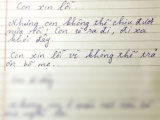 Con xin lỗi...
Nhưng con không thể chịu được
nữa rồi! Con sẽ ra đi, đi xa
khỏi đây.
Con xin lỗi vì không thể trả
ơn bố mẹ...